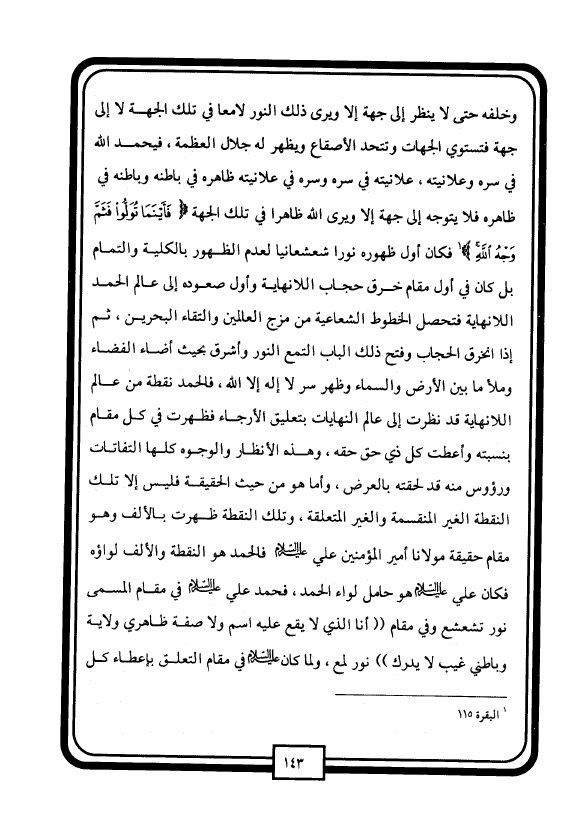 وخلفه حتى لا ينظر إلى جهة إلا ويرى ذلك النور لامعا في تلك الجهة لا إلى
جهة فتستوي الجهات وتتحد الأصقاع ويظهر له جلال العظمة ، فيحمد الله
في سره وعلانيته ، علانيته في سره وسره في علانيته ظاهره في باطنه وباطنه في
ظاهره فلا يتوجه إلى جهة إلا ويرى الله ظاهرا في تلك الجهة ﴿ فَأَيْنَمَا تُوَلُّواْ فَثَمَّ
وَجْهُ ٱللَّهِ ﴾١ فكان أول ظهوره نورا شعشعانيا لعدم الظهور بالكلية والتمام
بل كان في أول مقام خرق حجاب اللانهاية وأول صعوده إلى عالم الحمد
اللانهاية فتحصل الخطوط الشعاعية من مزج العالمين والتقاء البحرين ، ثم
إذا انخرق الحجاب وفتح ذلك الباب التمع النور وأشرق بحيث أضاء الفضاء
وملأ ما بين الأرض والسماء وظهر سر لا إله إلا الله ، فالحمد نقطة من عالم
اللانهاية قد نظرت إلى عالم النهايات بتعليق الأرجاء فظهرت في كل مقام
بنسبته وأعطت كل ذي حق حقه ، وهذه الأنظار والوجوه كلها التفاتات
ورؤوس منه قد لحقته بالعرض ، وأما هو من حيث الحقيقة فليس إلا تلك
النقطة الغير المنقسمة والغير المتعلقة ، وتلك النقطة ظهرت بالألف وهو
مقام حقيقة مولانا أمير المؤمنين علي عليه السلام فالحمد هو النقطة والألف لواؤه
فكان علي عليه السلام هو حامل لواء الحمد ، فحمد علي عليه السلام في مقام المسمى
نور تشعشع وفي مقام (( أنا الذي لا يقع عليه اسم ولا صفة ظاهري ولاية
وباطني غيب لا يدرك )) نور لمع ، ولما كان عليه السلام في مقام التعلق بإعطاء كل
١ البقرة ١١٥
١٤٣